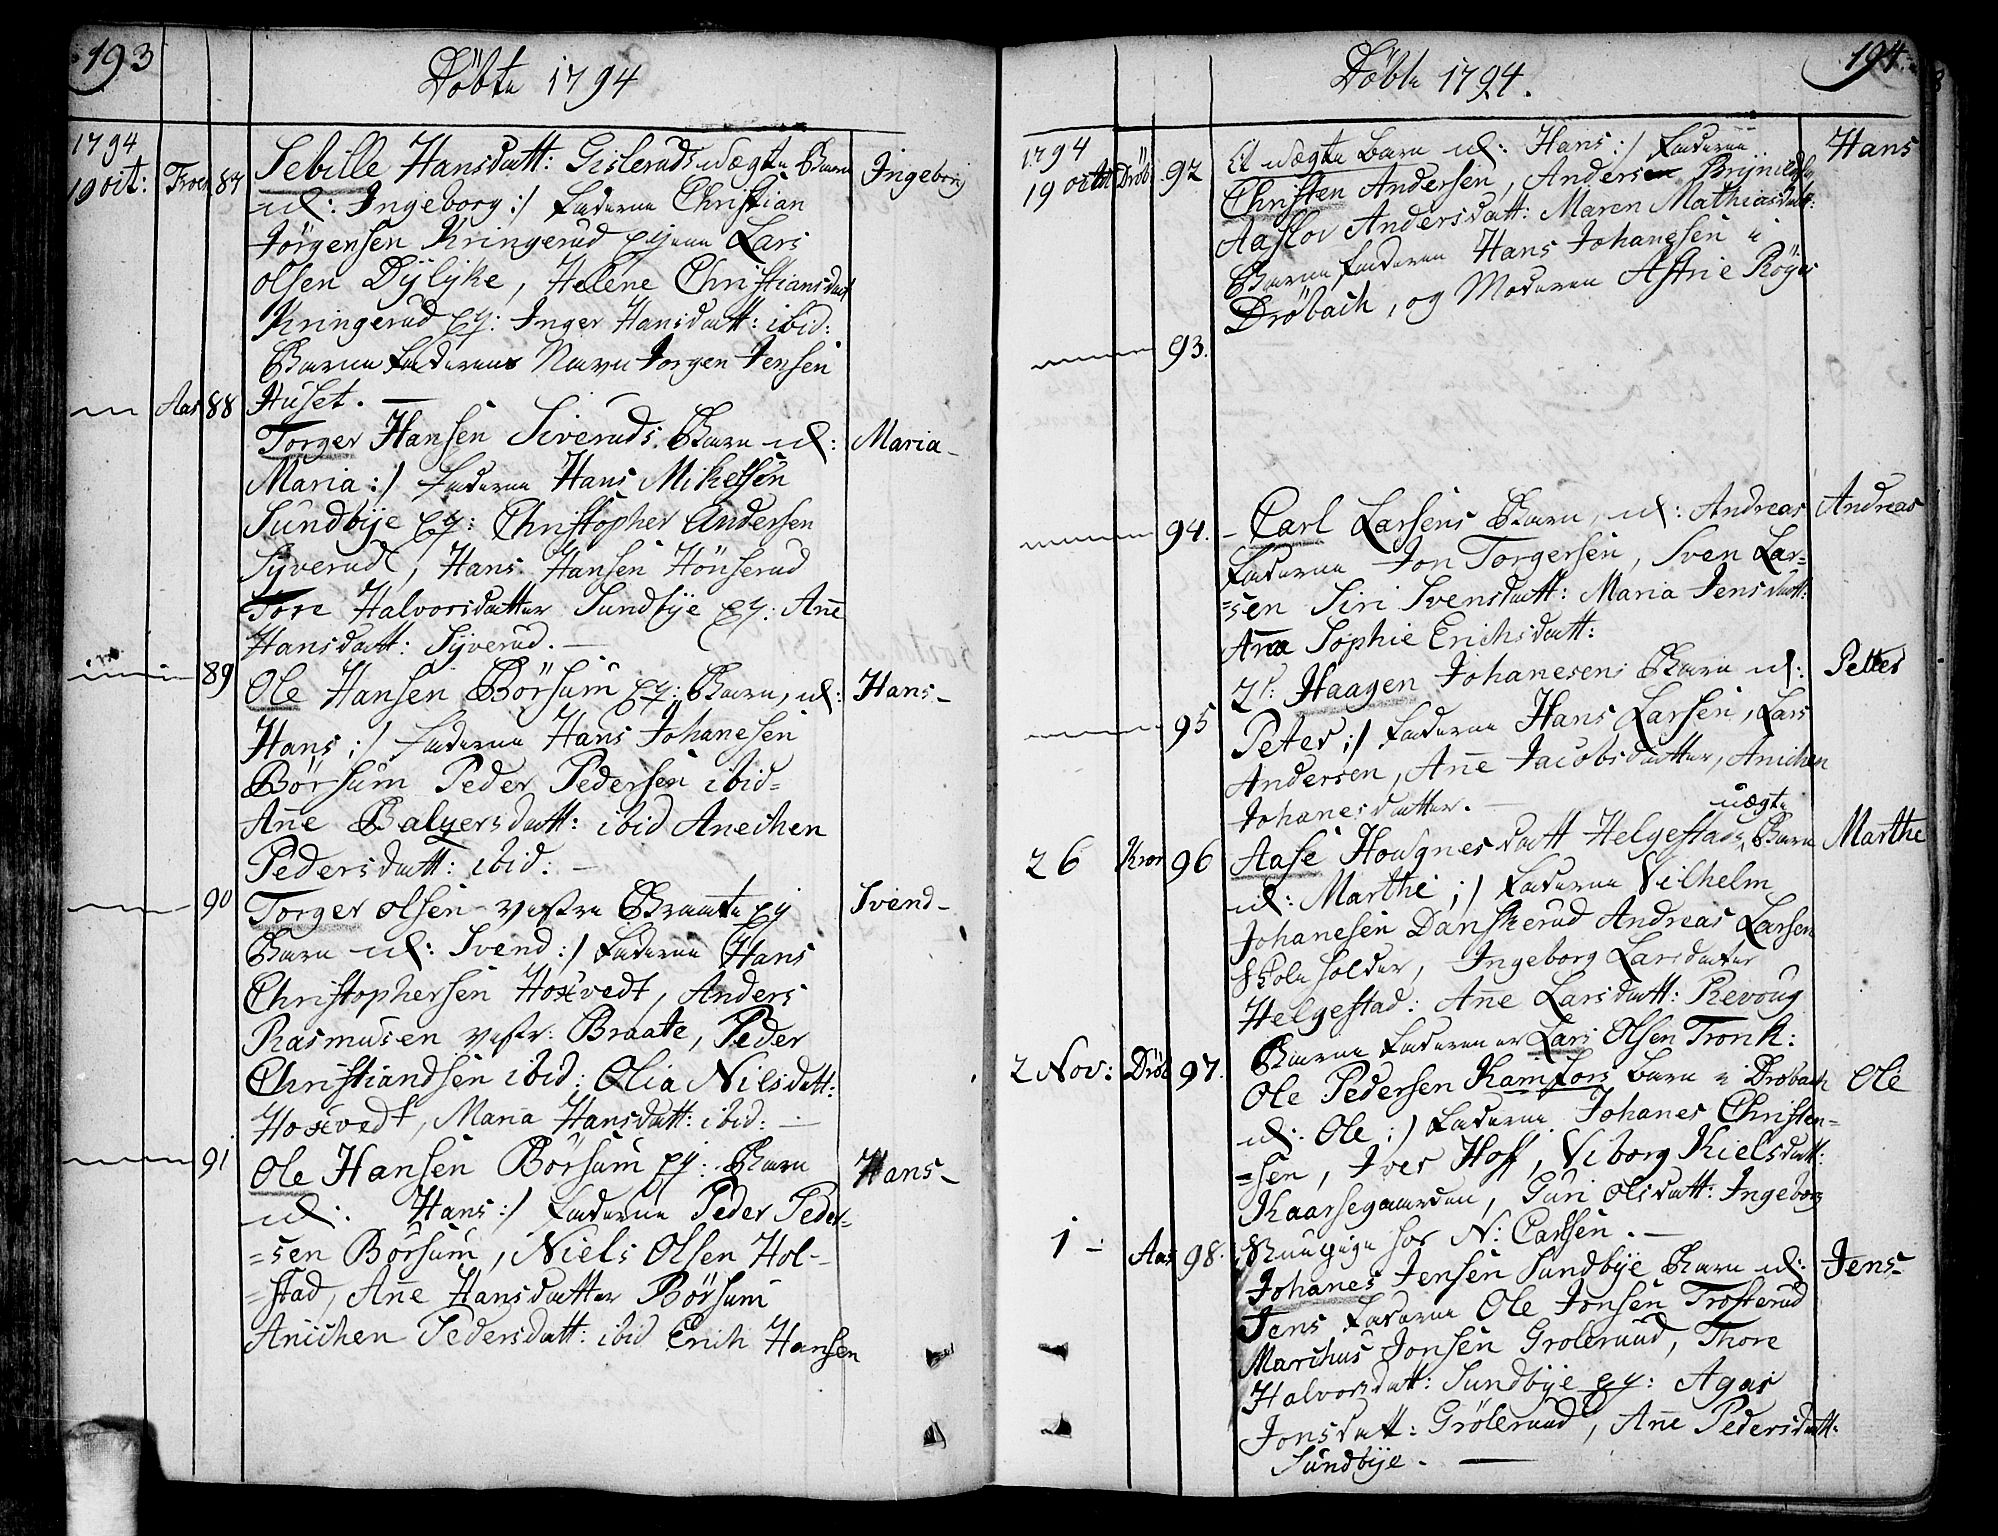 193
Döbte 1794
1794
19 oct: Froen 87 Sebille Hansdatt: Gislerudsuægte Barn Ingeborg
N: Ingeborg :/ Faderne Christian
Jörgensen Kringerud Ej: Lars
Olsen Dylyke, Helene Christiansdatt
Kringerud Ej: Inger Hansdatt: ibid:
Barne Faderens Navn Jorgen Jensen
Huset. —
Aas 88 Torger Hansen Siveruds Barn N: Maria
Maria :/ Faderne Hans Mikelsen
Sundbÿe Ej: Christopher Andersen
Syverud, Hans Hansen Hönserud
Tore Halvorsdatter Sundbÿe Ej: Añe
Hansdatt: Syverud. —
89 Ole Hansen Börsum Ej: Barn, N: Hans
Hans ;/ Faderne Hans Johanesen
Börsum Peder Pedersen ibid
Añe Balzersdatt: ibid Anichen
Pedersdatt: ibid: —
90 Torger Olsen vestre Braate Ej Svend
Barn N: Svend :/ Faderne Hans
Christophersen Hoxvedt, Anders
Rasmusen vestr: Braate, Peder
Christiandsen ibid: Olia Nilsdatt:
Hoxvedt, Maria Hansdatt: ibid: —
91 Ole Hansen Börsum Ej: Barn Hans
N: Hans :/ Faderne Peder Peder-
=sen Börsum, Niels Olsen Hol-
=stad, Añe Hansdatter Börsum
Anichen Pedersdatt: ibid Erich Hansen
194
Döbte 1794.
1794
19 octob Dröb 92 Et uægte Barn N: Hans :/ Faderne Hans
Christen Andersen, Andersen Brynilds
Aaslov Andersdatt: Maren Mathiasdatt:
Barne Faderen Hans Johanesen i
Dröbach, og Moderen Astrie Röger
93.
94. Carl Larsens Barn, N: Andreas Andreas
Faderne Jon Torgersen, Sven Lar=
=sen Siri Svensdatt: Maria Jensdatt:
Anna Sophie Erichsdatt:
95 Haagen Johanesens Barn N: Petter
Peter ;/ Faderne Hans Larsen, Lars
Andersen, Añe Jacobsdatter, Anichen
Johanesdatter. —
uægte
26 Kroer 96 Aase Hougnesdatt Helgestads Barn Marthe
N: Marthe ;/ Faderne Vilhelm
Johanesen Danskerud Andreas Larsen
Skoleholder, Ingeborg Larsdatter
Helgestad: Añe Larsdatt: Revoug
Barne Faderen er Lars Olsen Tronk:
2 Nov: Dröb 97. Ole Pedersen Kamfors Barn i Drøbach Ole
N: Ole ;/ Faderne Johanes Christen=
=sen, Iver Hoff, Viborg Kielsdatt:
Kaarsegaarden, Guri Olsdatt: Ingeborg
hos N: Carlsen. —
1 - Aas 98. Johanes Jensen Sundbÿe Barn N: Jens
Jens, Faderne Ole Jonsen Trosterud
Marchus Jonsen Grolerud, Thore
Halvorsdatt: Sundbÿe Ej: Agas
Jonsdatt: Grölerud, Añe Pedersdatt:
Sundbÿe. —